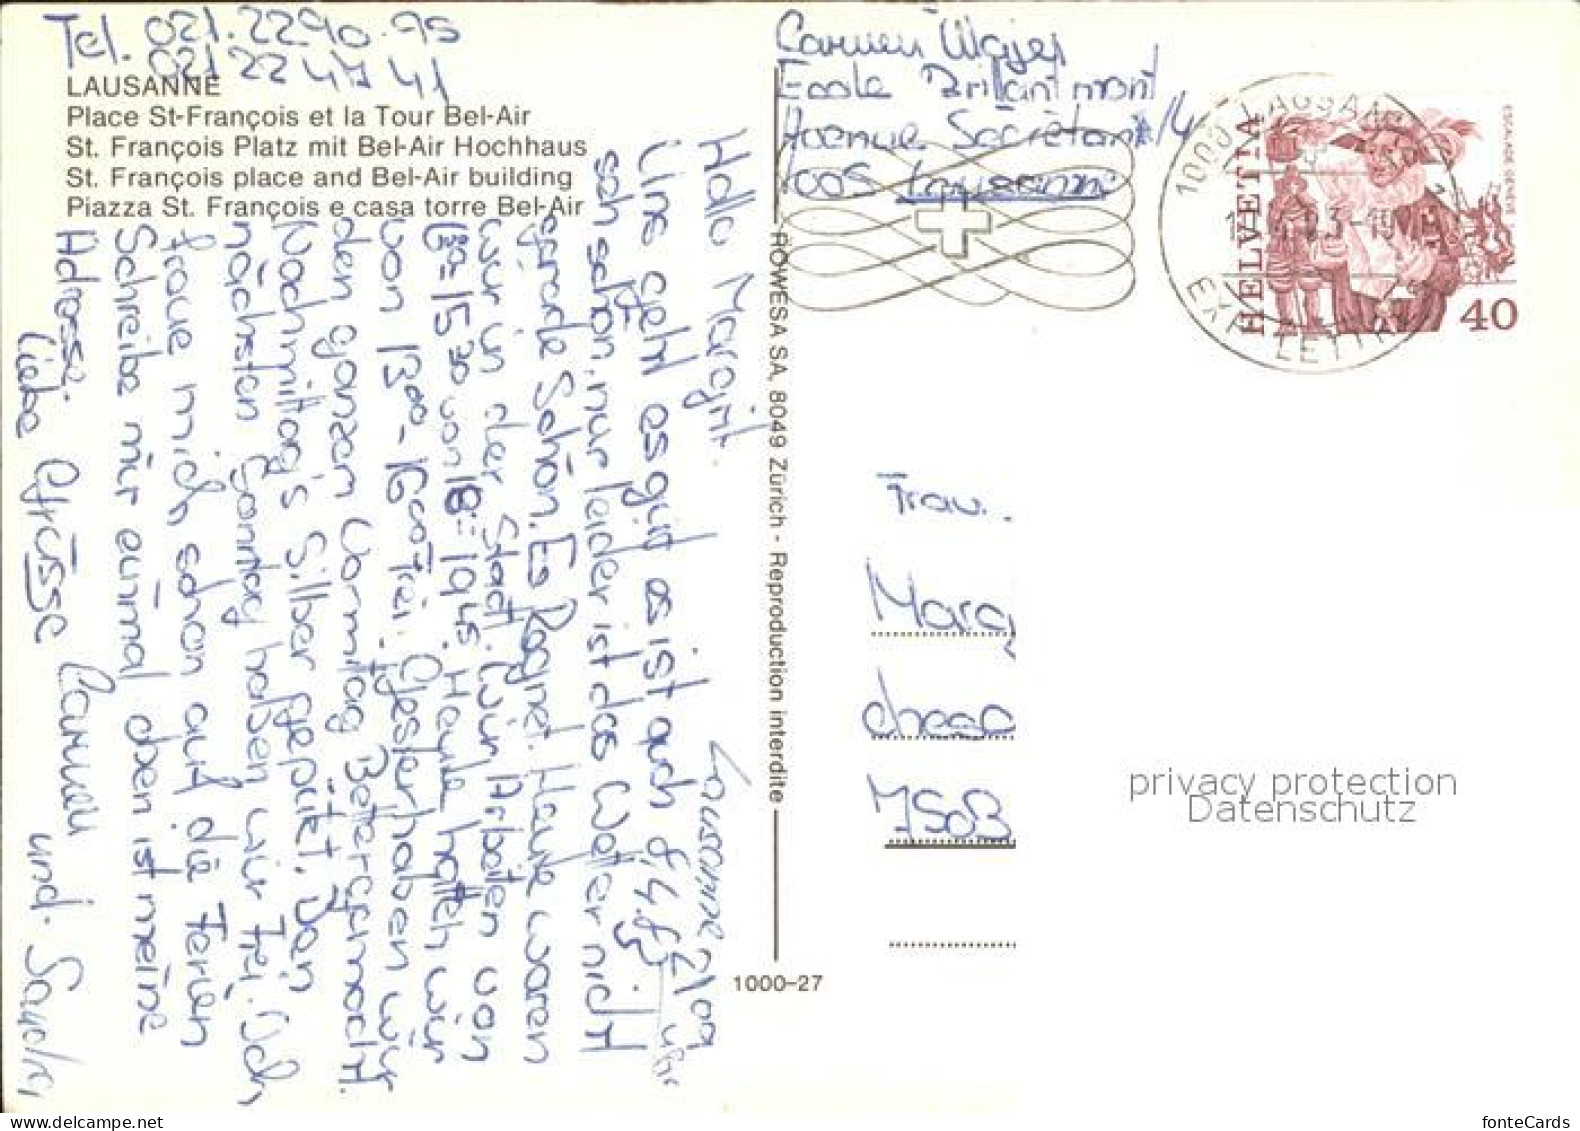 Tel. 021.2290.95
021 22 47 41
LAUSANNE
Place St-François et la Tour Bel-Air
St. François Platz mit Bel-Air Hochhaus
St. François place and Bel-Air building
Piazza St. François e casa torre Bel-Air
Lausanne 21 00 Uhr
8.4.83
Hallo Margrit.
Uns geht es gut es ist auch
sehr schön, nur leider ist das Wetter nicht
gerade Schön. Es Regnet. Heute waren
wir in der Stadt. Wir Arbeiten von
- 15 30 von 18 - 19 45. Heute hatten wir
von 13 00 - 16 00 Frei. Gestern haben wir
den ganzen Vormittag Betten gemacht.
Nachmittag's Silber geputzt. Dan
nächsten Sonntag haben wir Frei. Ich
freue mich schon auf die Ferien
Schreibe mir einmal oben ist meine
Adresse
Liebe Grüsse Carmen
und. Sandra
ROWESA SA, 8049 Zürich - Reproduction interdite
1000-27
Carmen Mayer
Ecole Brillantmont
Avenue Secrètan
1005 Lausanne
1000 LAUSANNE
EXP. LETTRES
HELVETIA
ESCALADE GENEVE
40
Frau.
privacy protection
Datenschutz
fonteCards